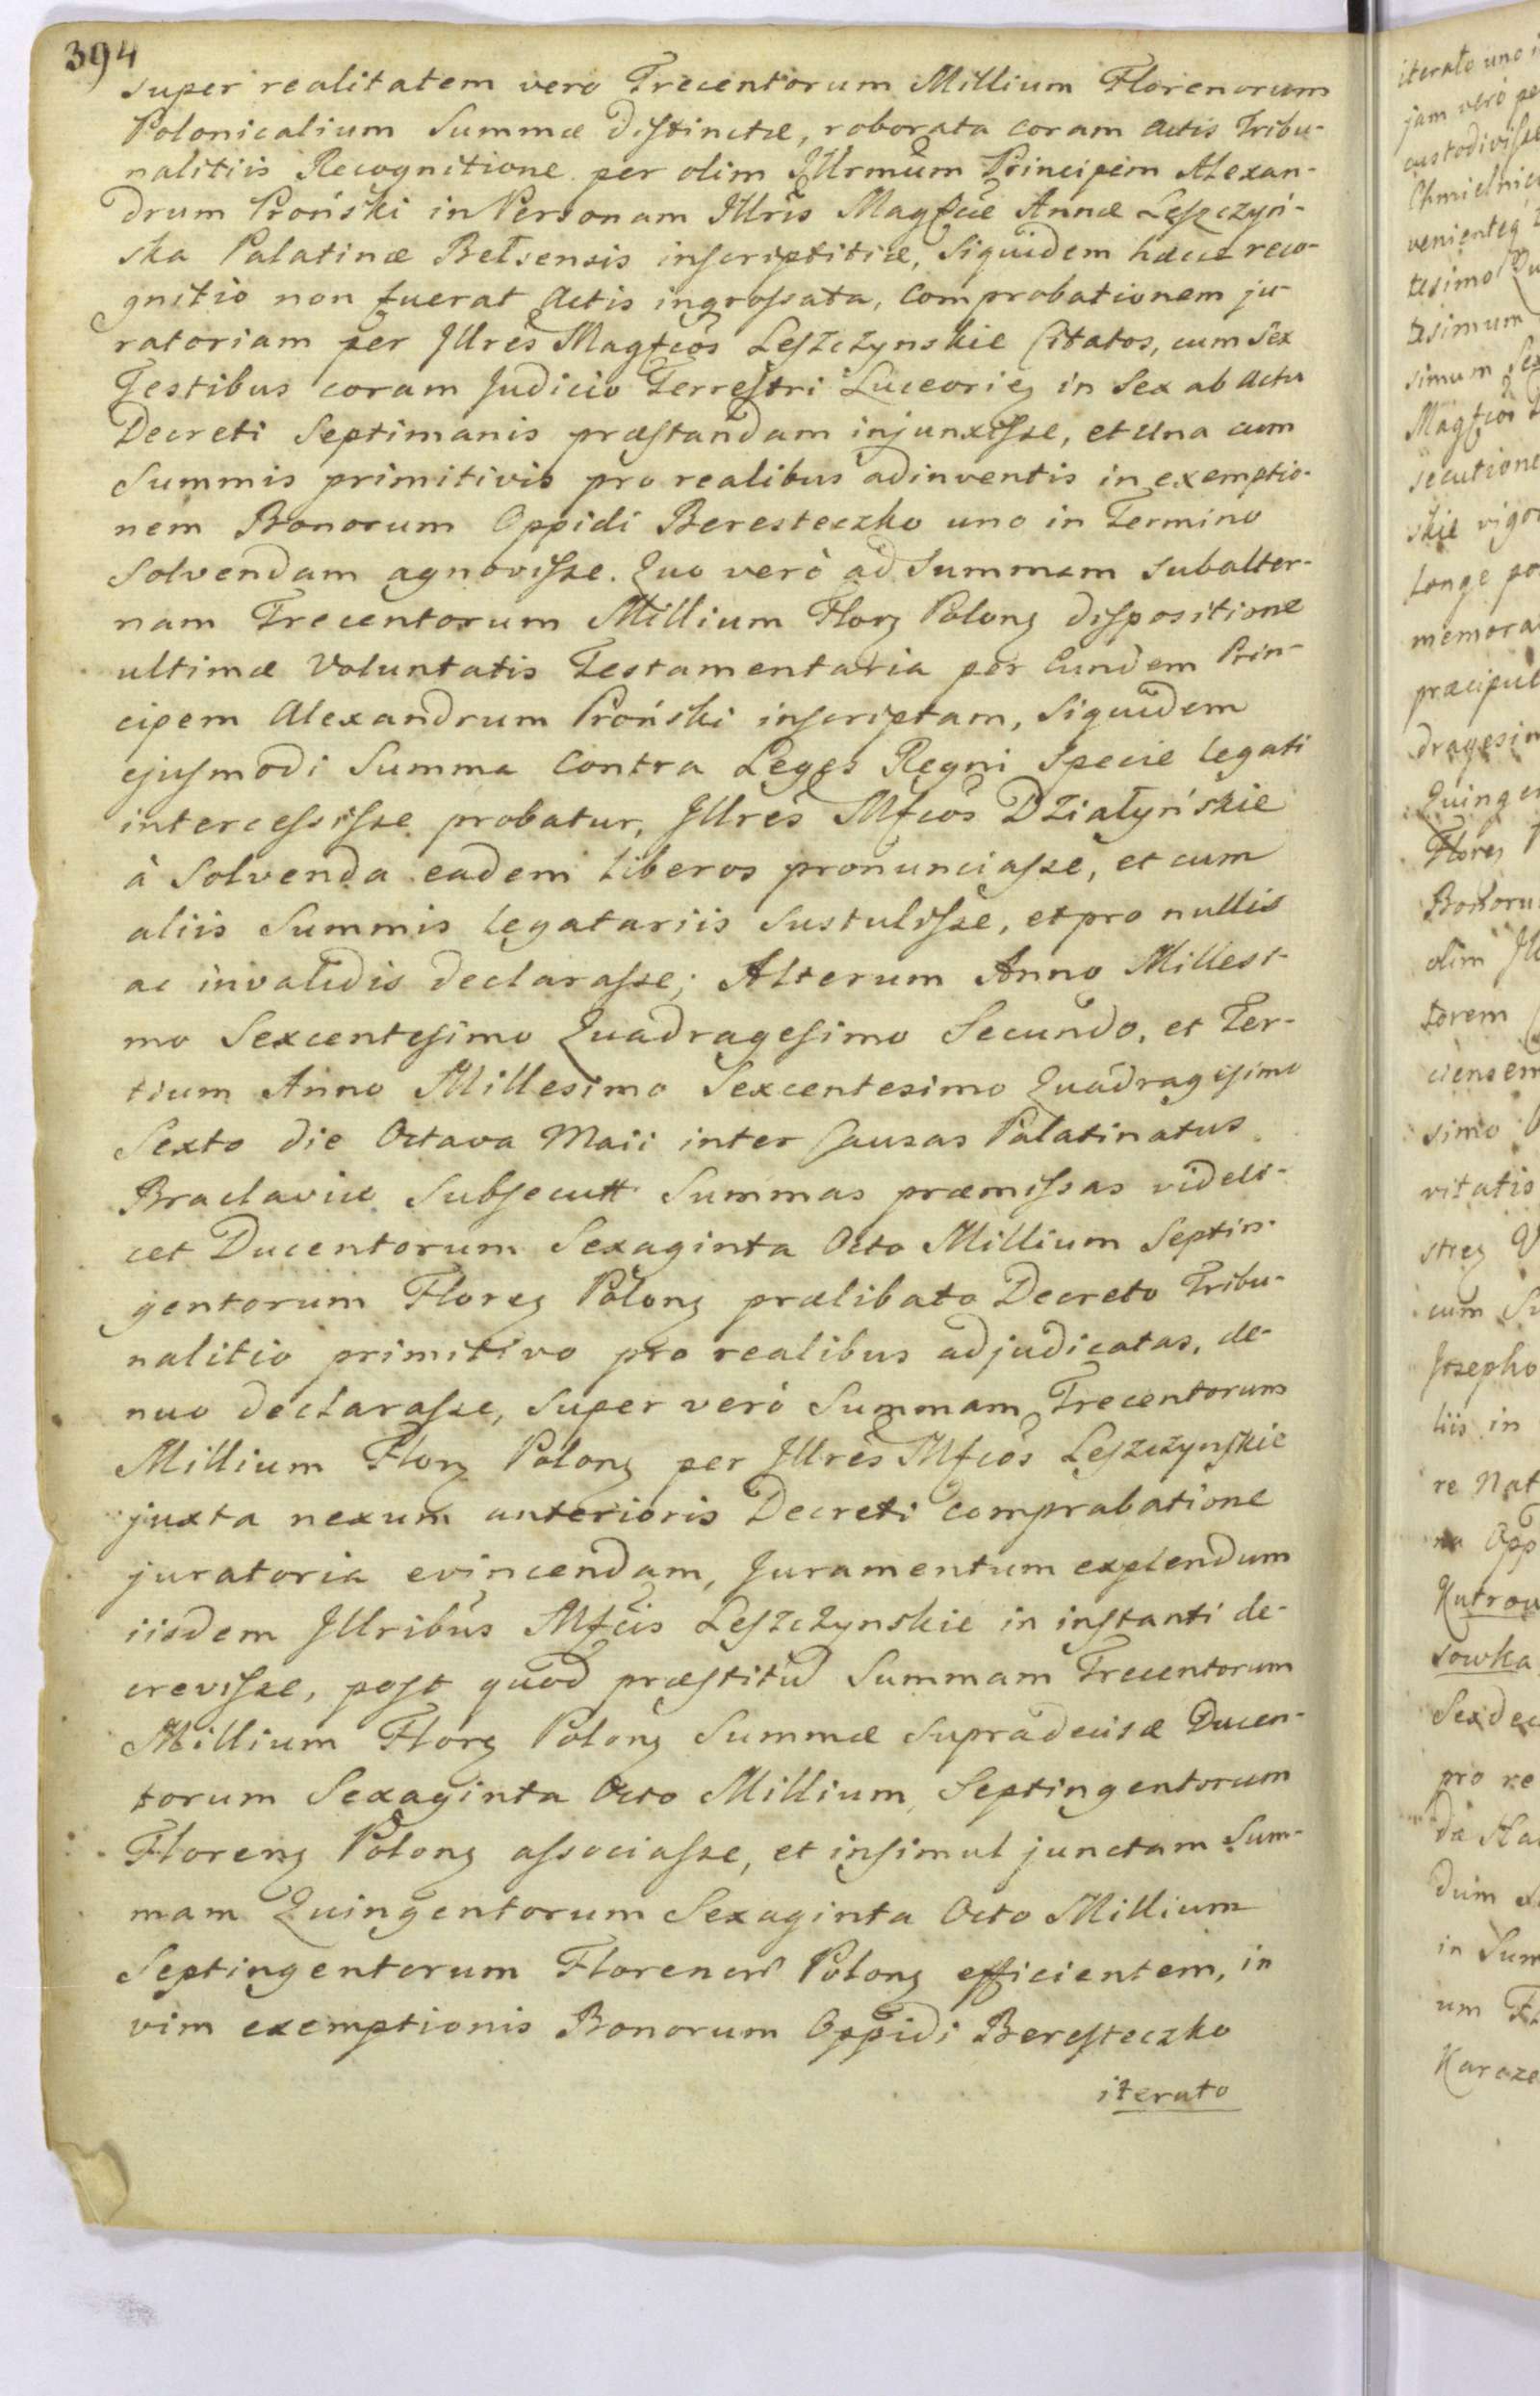 394
super realitatem vero Trecentorum Millium Florenorum
Polonicalium Summæ distinctæ, roborata coram Actis Tribu-
nalitiis Recognitione per olim Illrmum Principem Alexan-
drum Proński in Personam Illris Magfcæ Annæ Leszczyń-
ska Palatinæ Bełsensis inscriptitiæ, siquidem hæcce reco-
gnitio non fuerat Actis ingrossata, Comprobationem ju-
ratoriam per Illres Magfcos Leszczynskie Citatos, cum Sex
Testibus coram Judicio Terrestri Luceorien in Sex ab Actu
Decreti Septimanis præstandam injunxisse, et una cum
Summis primitivis pro realibus adinventis in exemptio-
nem Bonorum Oppidi Beresteczko uno in Termino
Solvendam agnovisse. Quo verò ad Summam subalter-
nam Trecentorum Millium Flor Polon dispositione
ultimæ Voluntatis Testamentaria per Eundem Prin-
cipem Alexandrum Proński inscriptam, siquidem
ejusmodi Summa Contra Leges Regni Specie legati
intercessisse probatur, Illres Mfcos Działyńskie
à Solvenda eadem liberos pronunciasse, et cum
aliis Summis legatariis sustulisse, et pro nullis
ac invalidis declarasse; Alterum Anno Millesi-
mo Sexcentesimo Quadragesimo Secundo, et Ter-
tium Anno Millesimo Sexcentesimo Quadragesimo
Sexto die Octava Maii inter Causas Palatinatus
Braclaviæ Subsecutt Summas præmissas videli-
cet Ducentorum Sexaginta Octo Millium Septin-
gentorum Floren Polon prælibato Decreto Tribu-
nalitio primitivo pro realibus adjudicatas, de-
nuo declarasse, super verò Summam Trecentorum
Millium Flor Polon per Illres Mfcos Leszczynskie
juxta nexum anterioris Decreti comprabatione
juratoria evincendam, Juramentum explendum
iisdem Illribus Mfcis Leszczynskie in instanti de-
crevisse, post quod præstitu Summam Trecentorum
Millium Flor Polon Summæ supradecisæ Ducen-
torum Sexaginta Octo Millium Septingentorum
Floren Polon associasse, et insimul junctam Sum-
mam Quingentorum Sexaginta Octo Millium
Septingentorum Florenor Polon efficientem, in
vim exemptionis Bonorum Oppidi Beresteczko
iterato